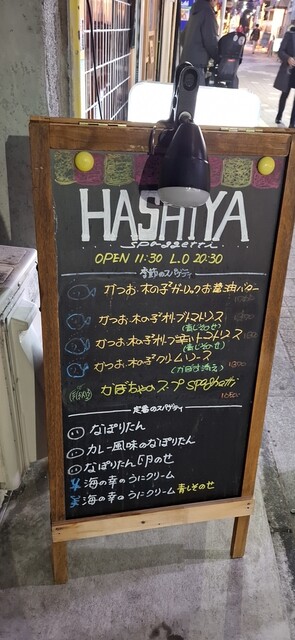 HASHIYA
spaggetti
OPEN 11:30 L.O 20:30
季節のスパゲティ
かつお・木の子ガーリックお醤油バター
かつお・木の子オリーブトマトソース
(青しそのせ)
かつお・木の子
トマトソース
(青しそのせ)
かつお・木の子クリームソース
(かぼちゃ添え)
かぼちゃのスープ spaghetti
定番のスパゲティ
なぽりたん
カレー風味のなぽりたん
なぽりたん 卵のせ
海の幸のうにクリーム
海の幸のうにクリーム 青しそのせ